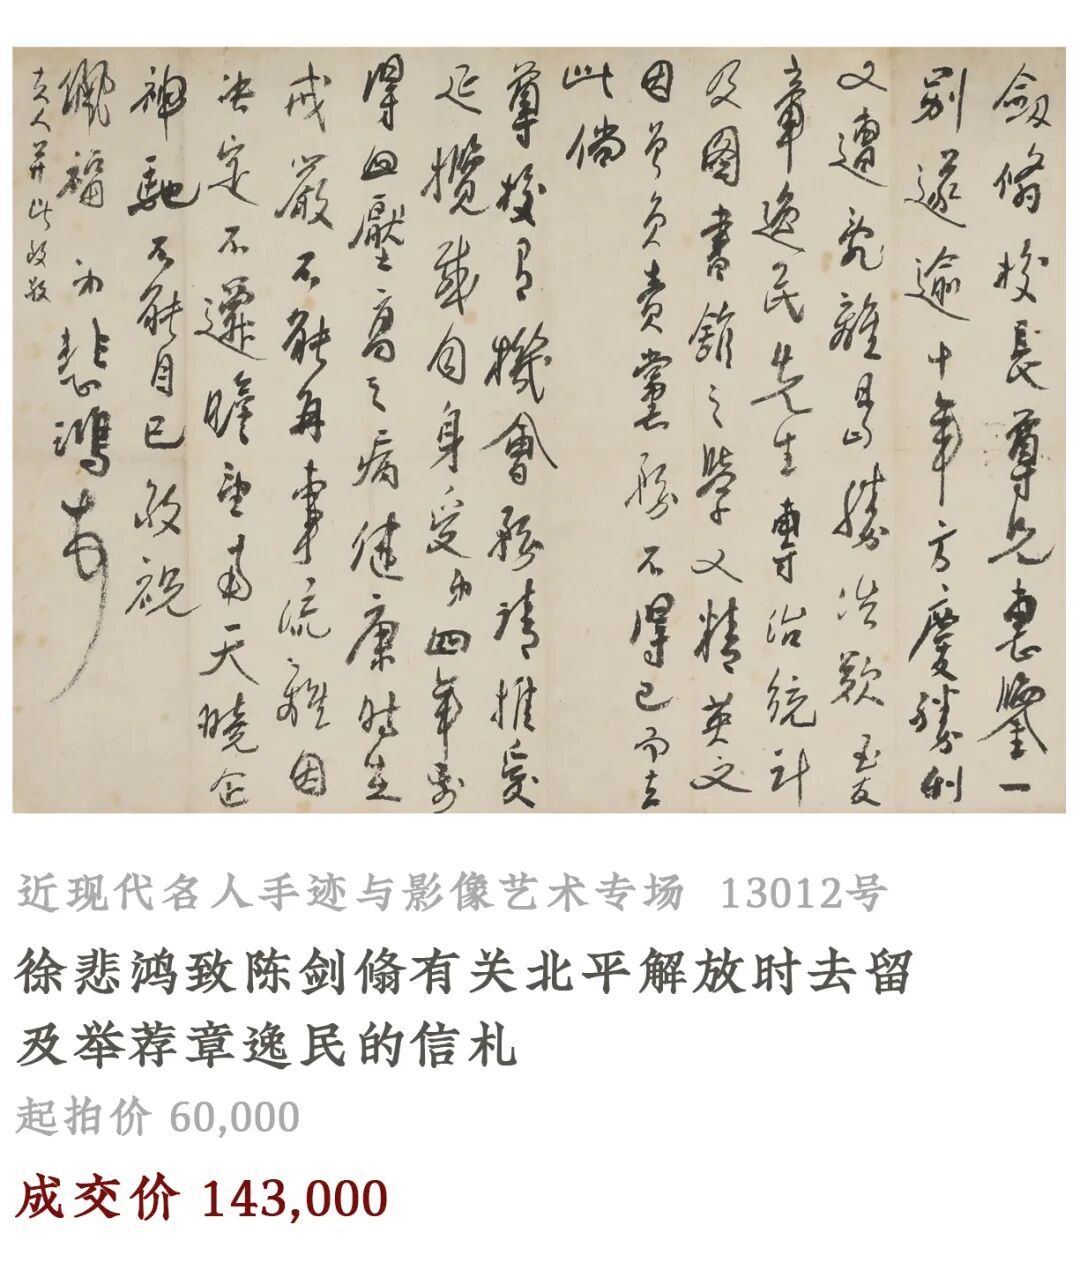 劍翛校長尊兄惠鑒一
别遂逾十年方慶勝利
又遭亂離曷勝浩歎至友
章逸民先生專治統計
及圖書館之學又精英文
因曾負責黨務不得已而去
此倘
尊校有機會務請推愛
延攬或自身受弟四年前
得血壓高之病健康時生
戒嚴不能再事流離因
决定不遷瞻望南天曉企
神馳不能自已敬祝
儷福 弟悲鴻頓
夫人并此致敬
近现代名人手迹与影像艺术专场 13012号
徐悲鸿致陈剑翛有关北平解放时去留
及举荐章逸民的信札
起拍价 60,000
成交价 143,000